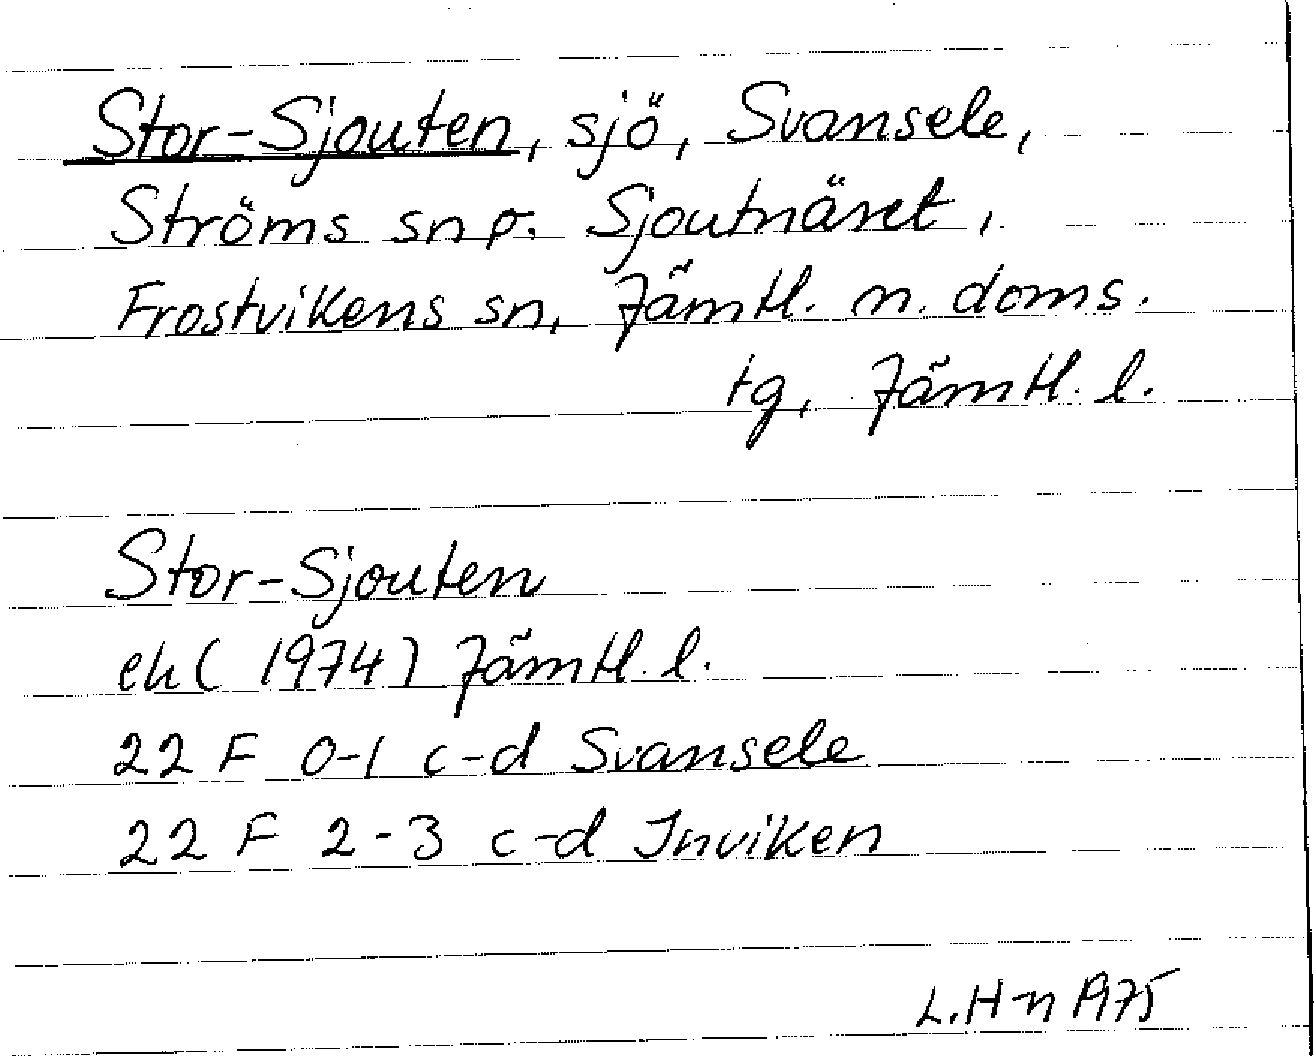 Stor-Sjouten, sjö, Svansele,
Ströms sn o. Sjoutnäset,
Frostvikens sn, Jämtl. n. doms.
tg, Jämtl. l.
Stor-Sjouten
ek (1974) Jämtl. l.
22 F 0-1 c-d Svansele
22 F 2-3 c-d Inviken
L.H-n 1975